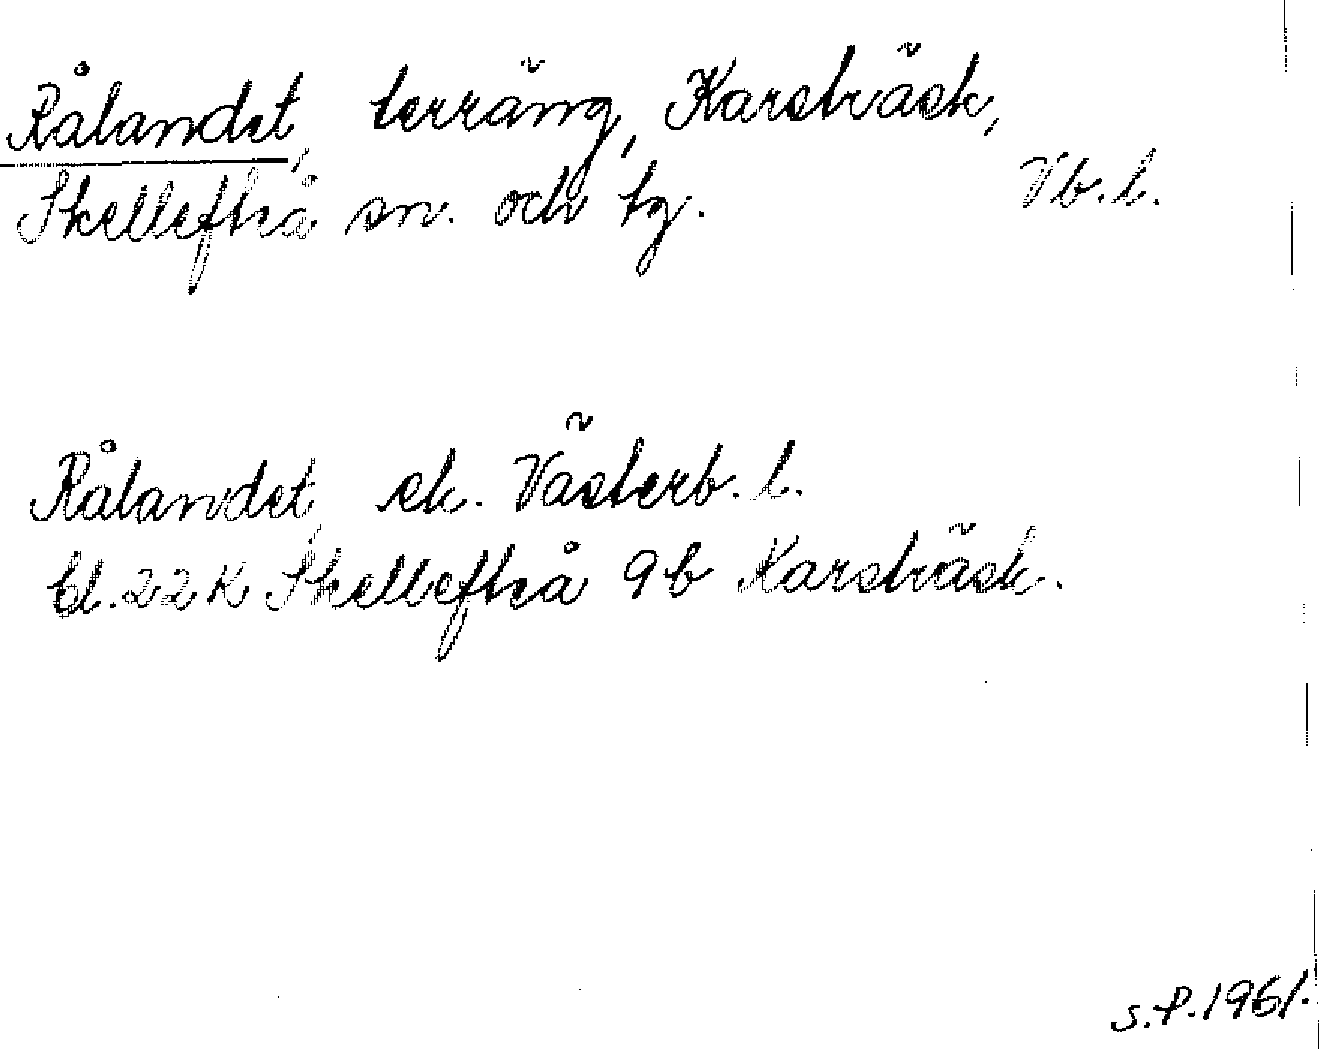 Rålandet, terräng, Karsträsk,
Skellefteå sn. och tg. Vb.l.
Rålandet, ek. Västerb. l.
bl. 22K Skellefteå 9b Karsträsk.
S.P. 1961.